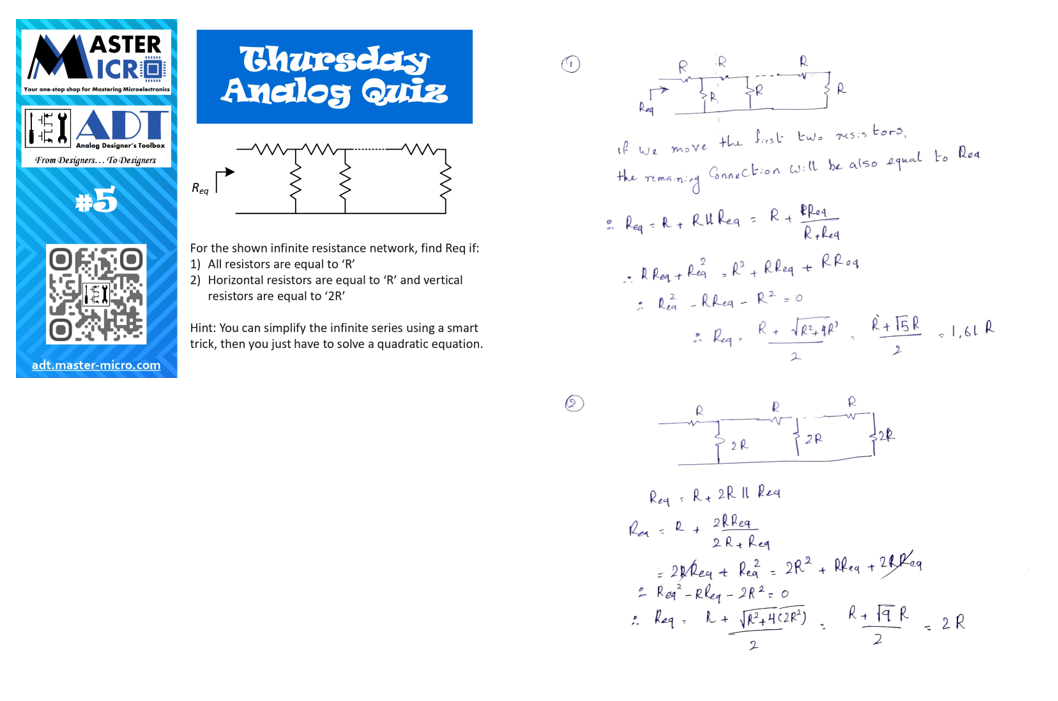 MASTER
MICRO
Your one-stop shop for Mastering Microelectronics
ADT
Analog Designer's Toolbox
From Designers... To Designers
#5
adt.master-micro.com
Thursday
Analog Quiz
Req
For the shown infinite resistance network, find Req if:
1) All resistors are equal to 'R'
2) Horizontal resistors are equal to 'R' and vertical
resistors are equal to '2R'
Hint: You can simplify the infinite series using a smart
trick, then you just have to solve a quadratic equation.
①
R R R
R R R
Req
if we move the first two resistors,
the remaining Connection will be also equal to Req
∴ Req = R + R || Req = R + RReq / (R+Req)
∴ RReq + Req² = R² + RReq + RReq
∴ Req² - RReq - R² = 0
∴ Req = (R + √(R²+4R²)) / 2 = (R + √5 R) / 2 = 1,61 R
②
R R R
2R 2R 2R
Req = R + 2R || Req
Req = R + 2RReq / (2R + Req)
= 2RReq + Req² = 2R² + RReq + 2RReq
∴ Req² - RReq - 2R² = 0
∴ Req = (R + √(R²+4(2R²))) / 2 = (R + √9 R) / 2 = 2R